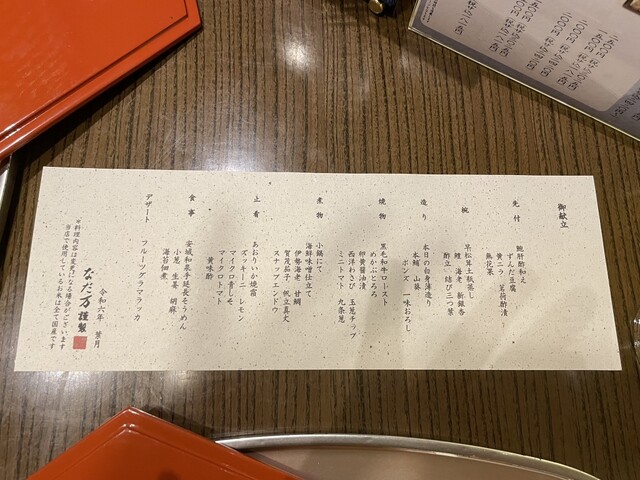 御献立
先付
鮑肝酢和え
ずんだ豆腐
黄ニラ 茗荷酢漬け
無花果
椀
早松茸土瓶蒸し
鱧 海老 新銀杏
酢立 結び三つ葉
造り
本日の白身薄造り
本鮪 山葵
ポンズ 一味おろし
焼物
黒毛和牛ロースト
めかぶとろろ
卵黄醤油漬
西洋わさび 玉葱チップ
ミニトマト 九条葱
煮物
小鍋に
海鮮味噌仕立て
伊勢海老 甘鯛
賀茂茄子 帆立真丈
スナップエンドウ
止肴
あおりいか焼霜
ズッキーニ レモン
マイクロ青しそ
マイクロトマト
黄味酢
食事
安城和泉手延長そうめん
小葱 生姜 胡麻
海苔佃煮
デザート
フルーツグラマラッカ
令和六年 葉月
なだ万 謹製
*料理内容は変更になる場合がございます
当店で使用しているお米は全て国産です